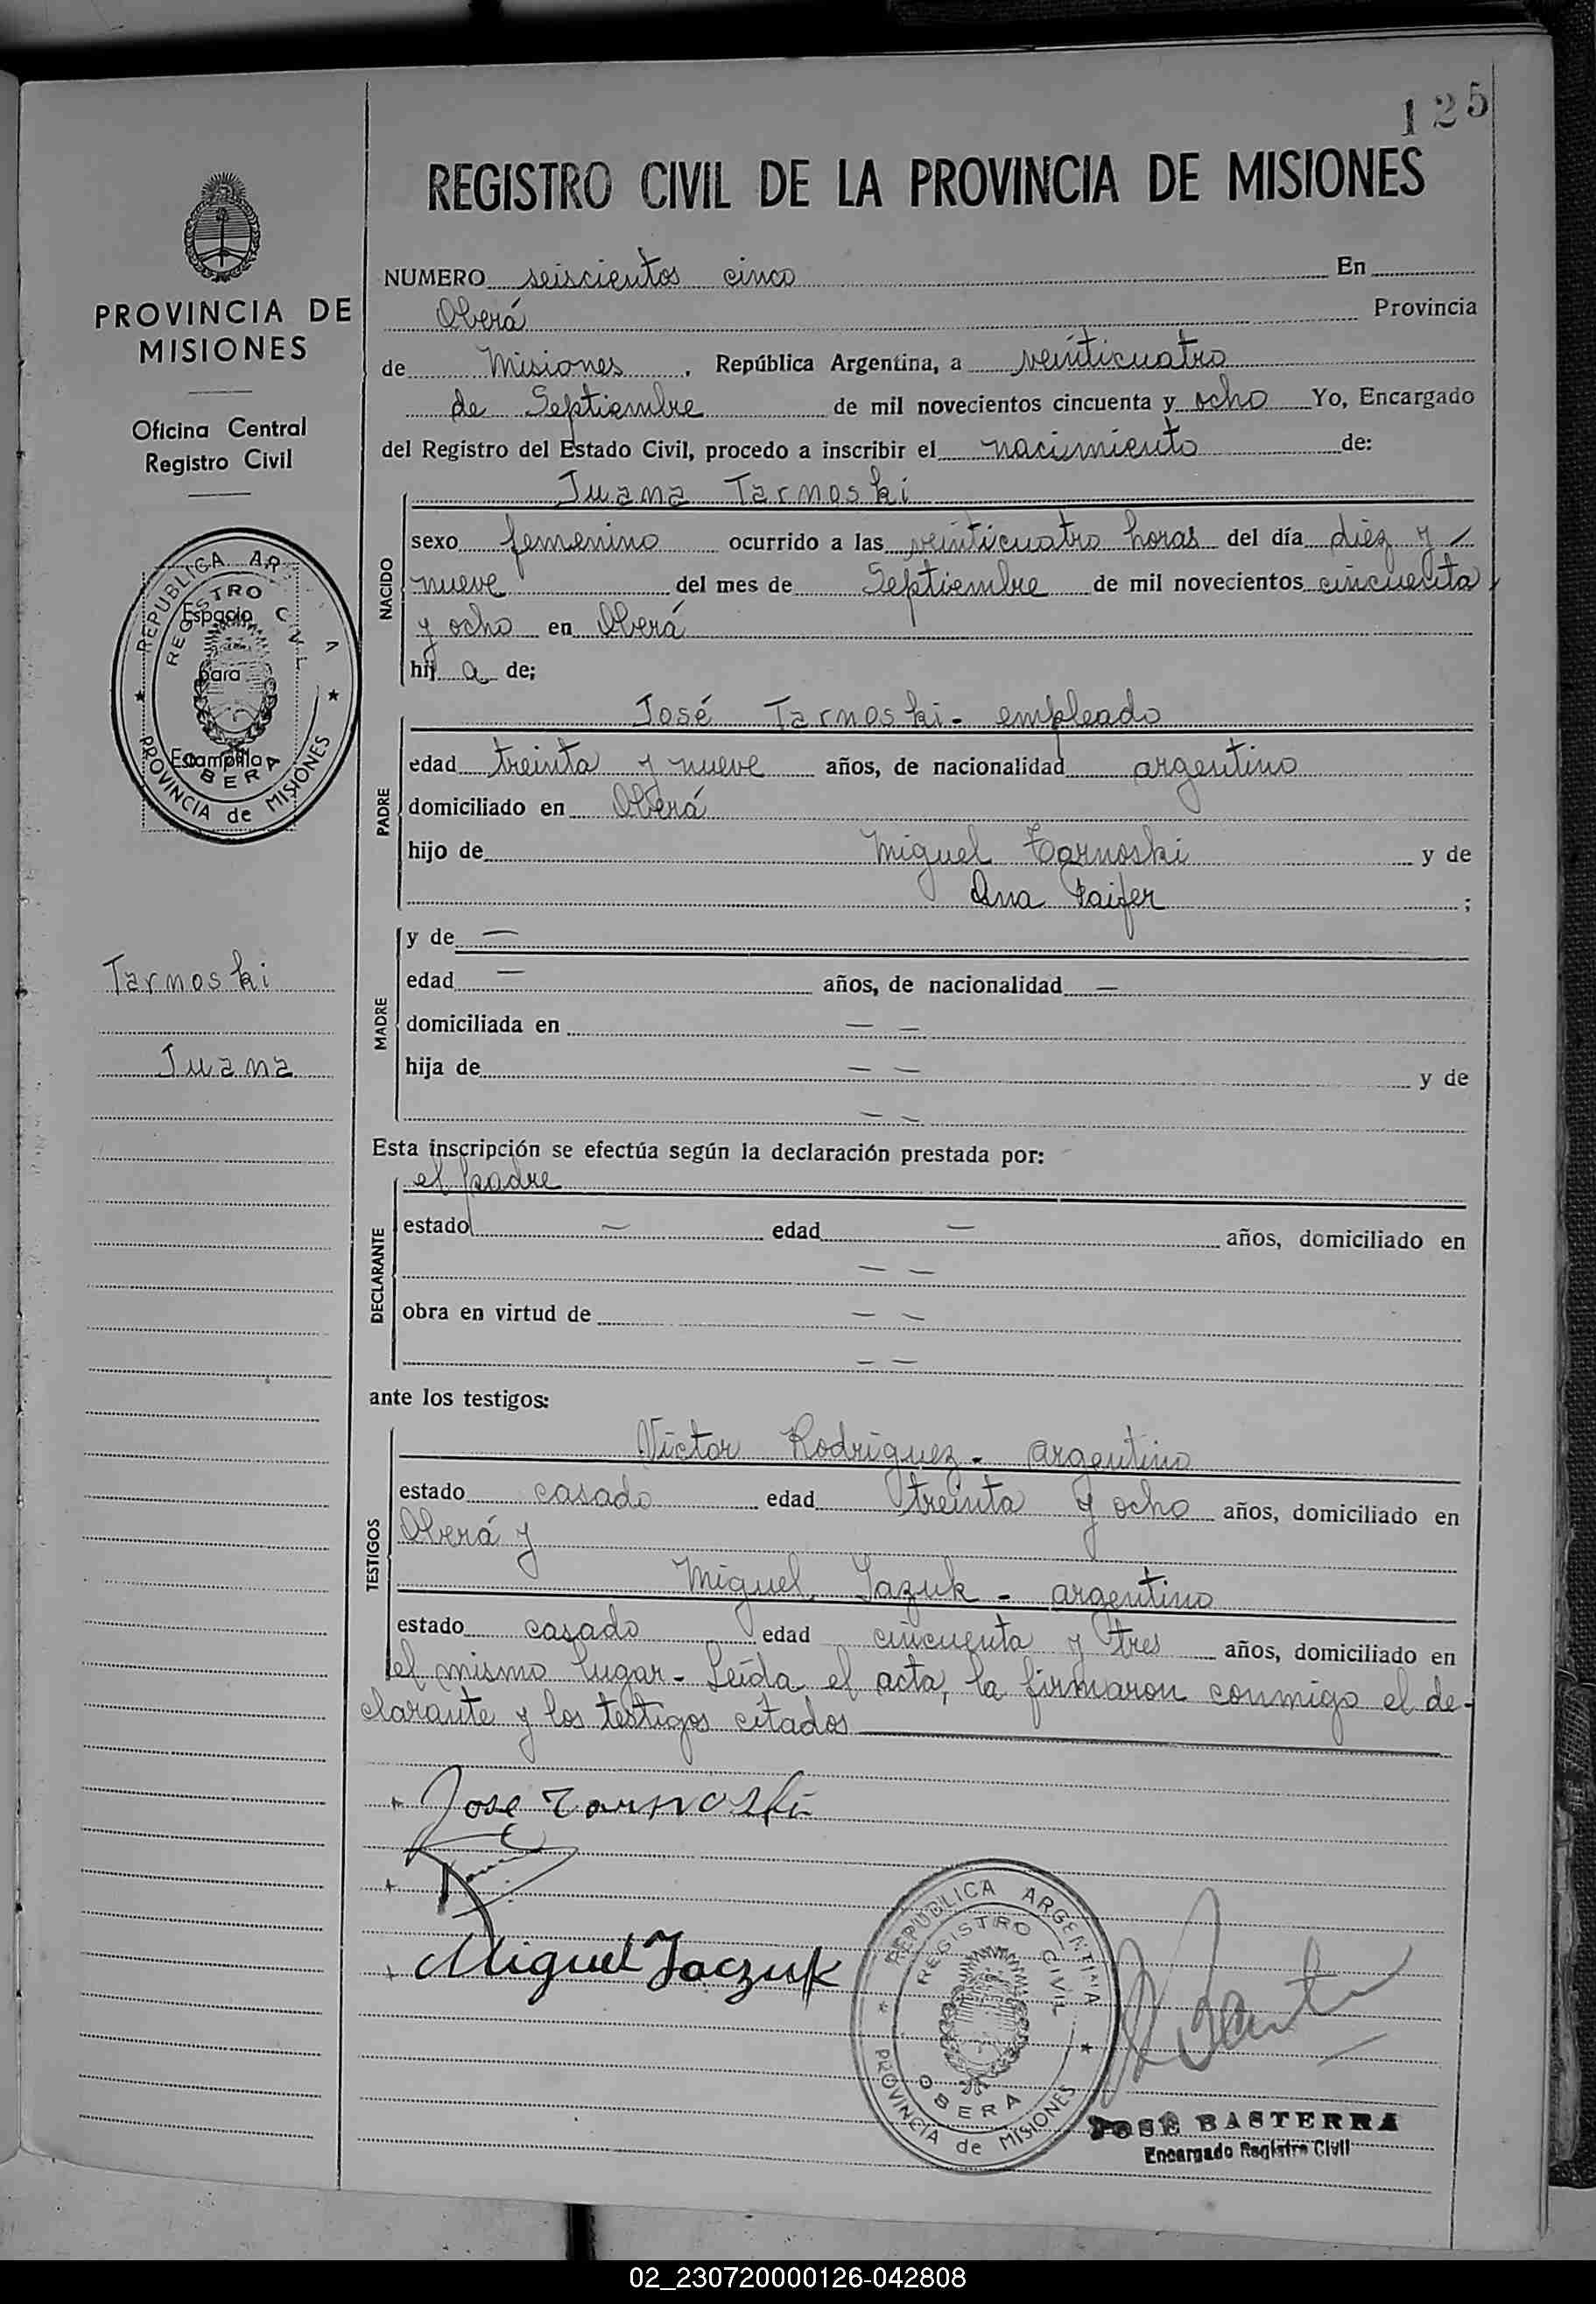 125
REGISTRO CIVIL DE LA PROVINCIA DE MISIONES
PROVINCIA DE
MISIONES
Oficina Central
Registro Civil
REPUBLICA AR A
REGISTRO CIVIL
Espacio
para
Estampilla
OBERA
PROVINCIA de MISIONES
Tarnoski
Juana
NUMERO seiscientos cinco En
Oberá Provincia
de Misiones, República Argentina, a veinticuatro
de Septiembre de mil novecientos cincuenta y ocho Yo, Encargado
del Registro del Estado Civil, procedo a inscribir el nacimiento de:
NACIDO
Juana Tarnoski
sexo femenino ocurrido a las veinticuatro horas del día diez y
nueve del mes de Septiembre de mil novecientos cincuenta
y ocho en Oberá
hij a de;
PADRE
José Tarnoski - empleado
edad treinta y nueve años, de nacionalidad argentino
domiciliado en Oberá
hijo de Miguel Tarnoski y de
Ana Paifer ;
MADRE
y de —
edad — años, de nacionalidad —
domiciliada en — —
hija de — — y de
— —
Esta inscripción se efectúa según la declaración prestada por:
DECLARANTE
el padre
estado — edad — años, domiciliado en
— —
obra en virtud de — —
— —
ante los testigos:
TESTIGOS
Victor Rodriguez - argentino
estado casado edad treinta y ocho años, domiciliado en
Oberá y
Miguel Jazuk - argentino
estado casado edad cincuenta y tres años, domiciliado en
el mismo lugar - Leída el acta, la firmaron conmigo el de-
clarante y los testigos citados
+ Jose Tarnoski
+
+ Miguel Jaczuk
REPUBLICA ARGENTINA
REGISTRO CIVIL
OBERA
PROVINCIA de MISIONES
JOSE BASTERRA
Encargado Registro Civil
02_230720000126-042808